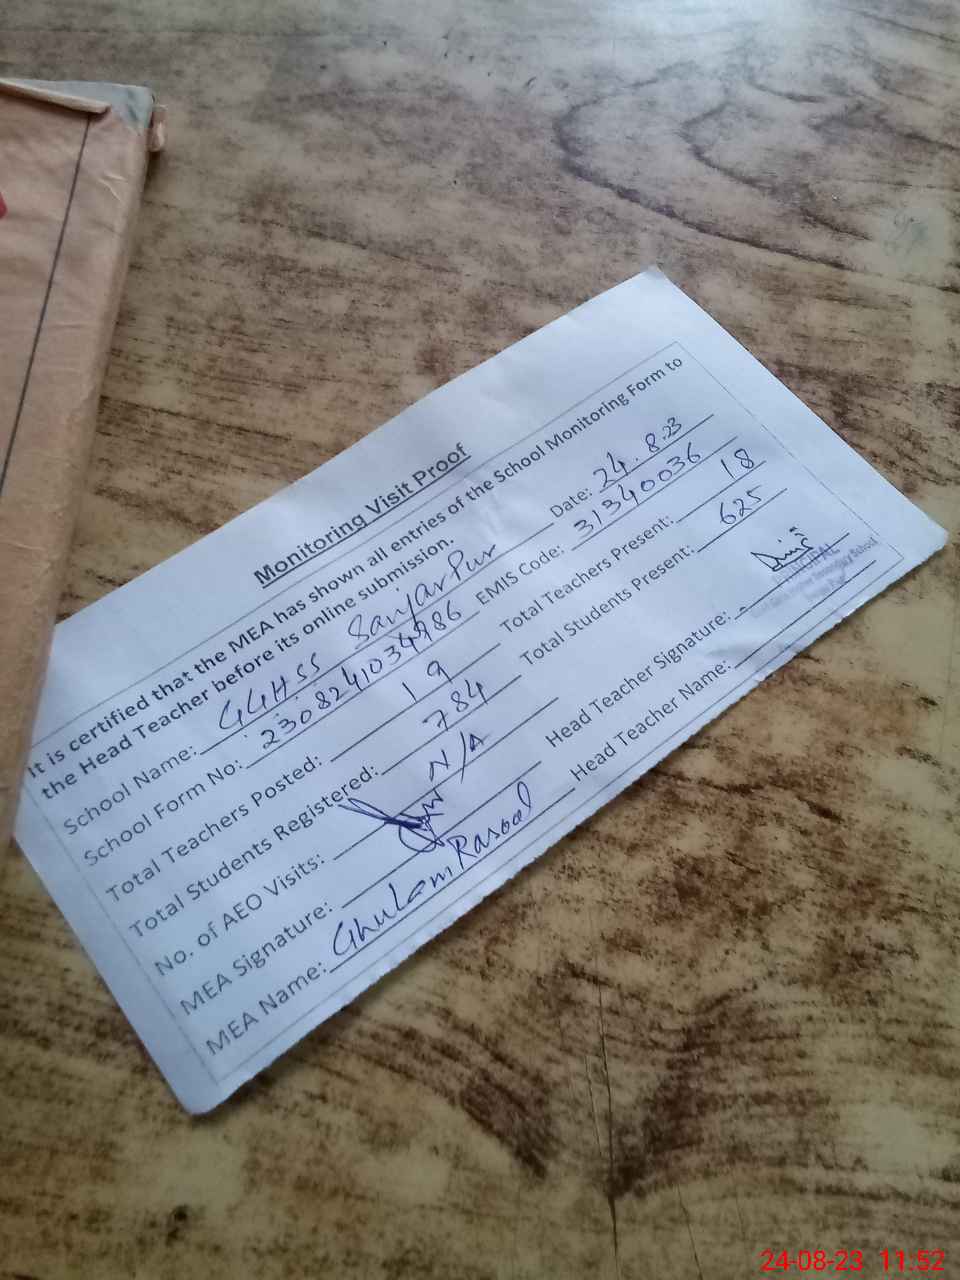 Monitoring Visit Proof
It is certified that the MEA has shown all entries of the School Monitoring Form to
the Head Teacher before its online submission.
School Name: GGHSS Sanjar Pur Date: 24.8.23
School Form No: 2308241034986 EMIS Code: 31340036
Total Teachers Posted: 19 Total Teachers Present: 18
Total Students Registered: 784 Total Students Present: 625
No. of AEO Visits: N/A
MEA Signature: Head Teacher Signature:
MEA Name: Ghulam Rasool Head Teacher Name:
24-08-23 11:52